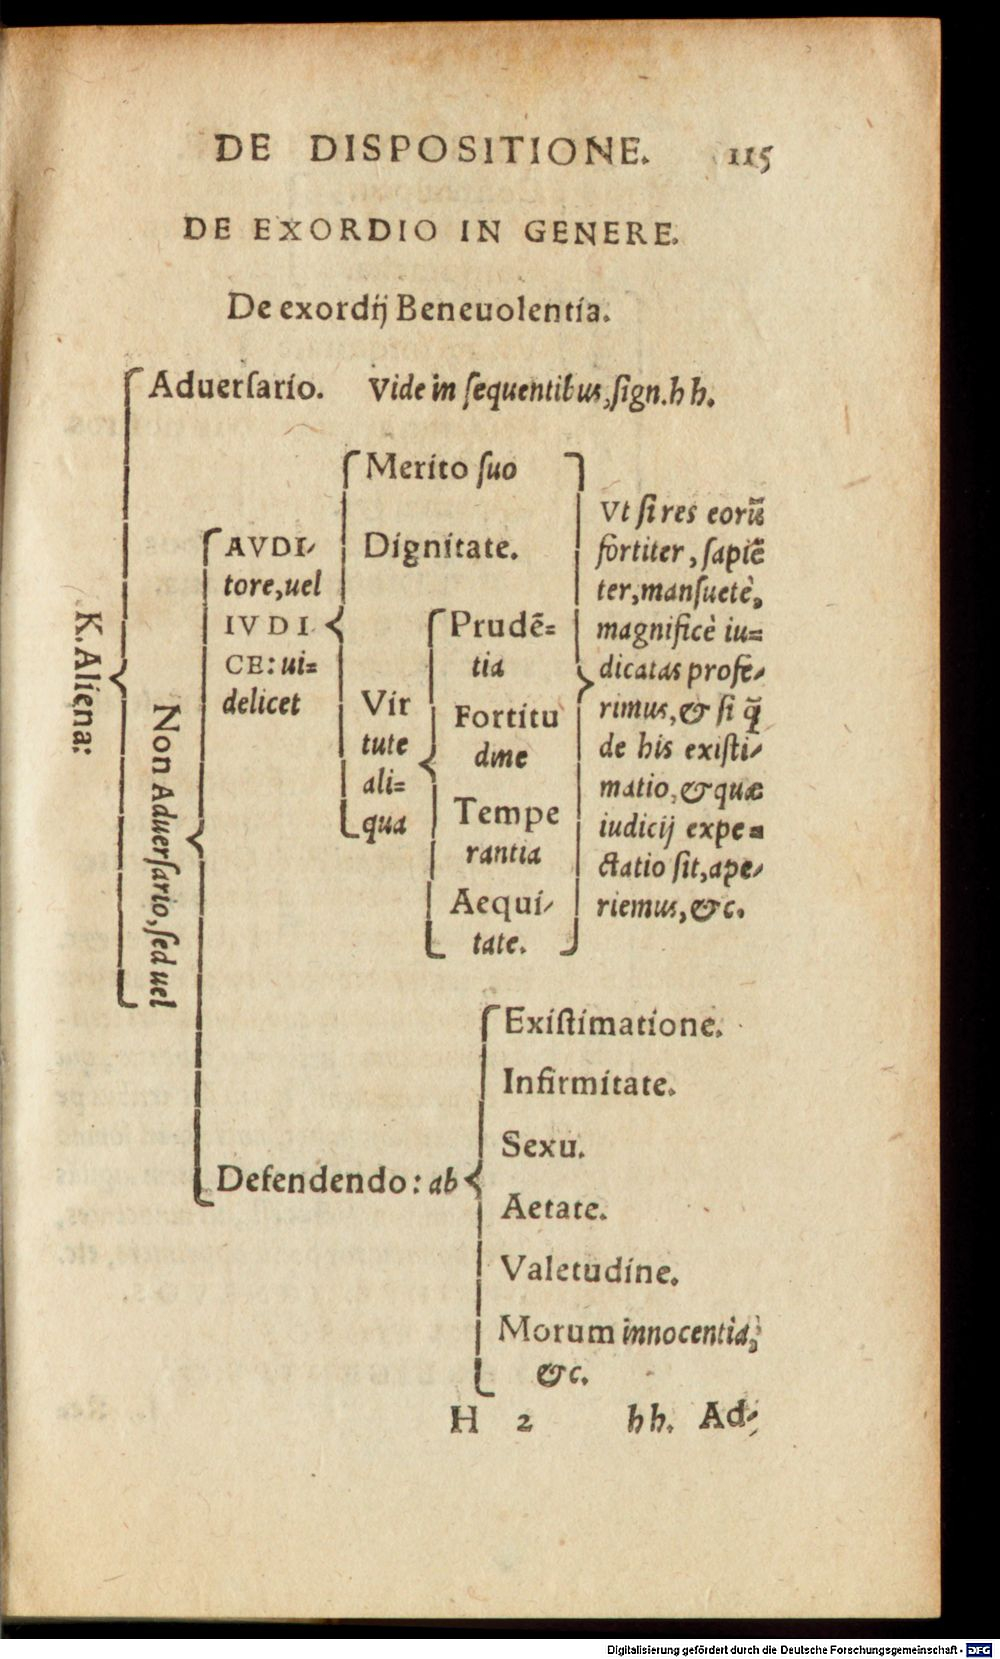 DE DISPOSITIONE. 115
DE EXORDIO IN GENERE.
De exordij Beneuolentia.
K. Aliena:
Aduersario. Vide in sequentibus, sign. hh.
Non Aduersario, sed uel
AVDI-
tore, uel
IVDI
CE: ui=
delicet
Merito suo
Dignitate.
Vir
tute
ali=
qua
Prudē=
tia
Fortitu
dine
Tempe
rantia
Aequi-
tate.
Vt si res eorū
fortiter, sapiē
ter, mansuetè,
magnificè iu=
dicatas profe-
rimus, & si q̃
de his existi-
matio, & quæ
iudicij expe=
ctatio sit, ape-
riemus, &c.
Defendendo: ab
Existimatione.
Infirmitate.
Sexu.
Aetate.
Valetudine.
Morum innocentia,
&c.
H 2 hh. Ad-
Digitalisierung gefördert durch die Deutsche Forschungsgemeinschaft - DFG